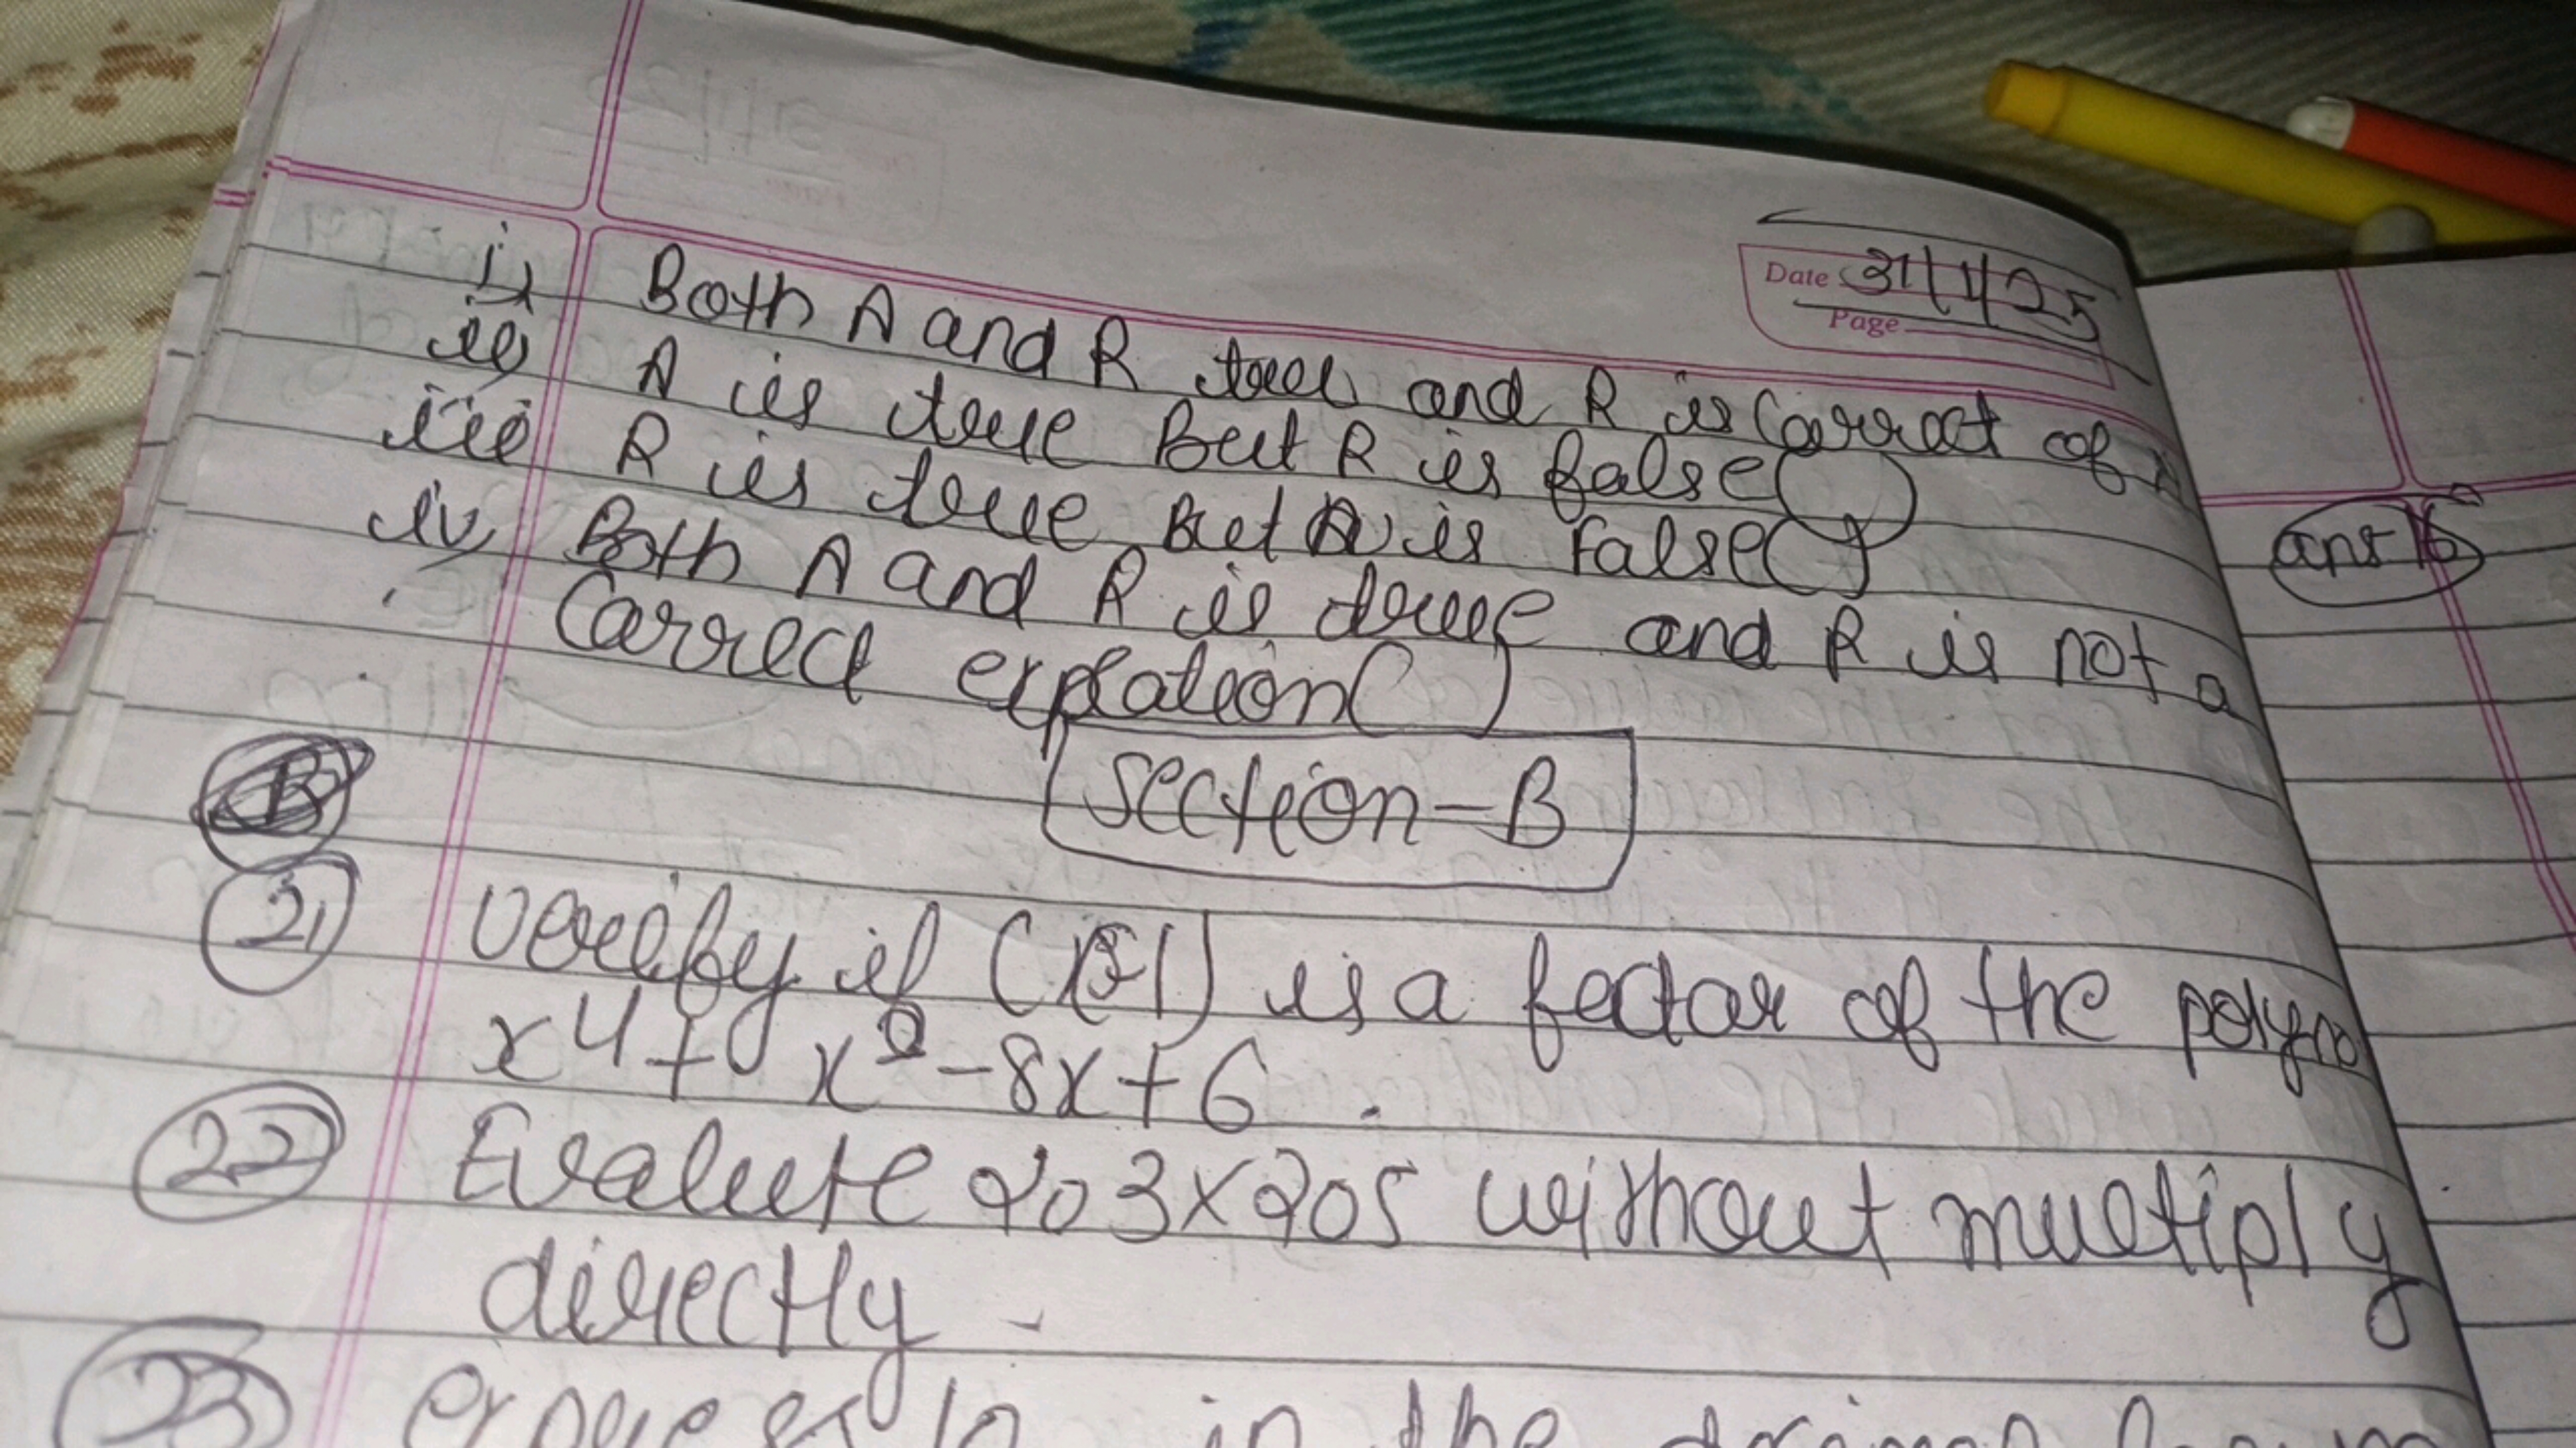 Date 31/1/25
Page
i) Both A and R true and R is Carrect of
ii) A is true But R is false( )
iii) R is true But is False( )
iv) Both A and R is true and R is not a
Carrect explation( )
Section-B
21 Verify if is a factor of the polyno
x4 + x2 - 8x + 6 .
22 Evalute 203 x 205 without multiply
directly .
23 in the
ans 16